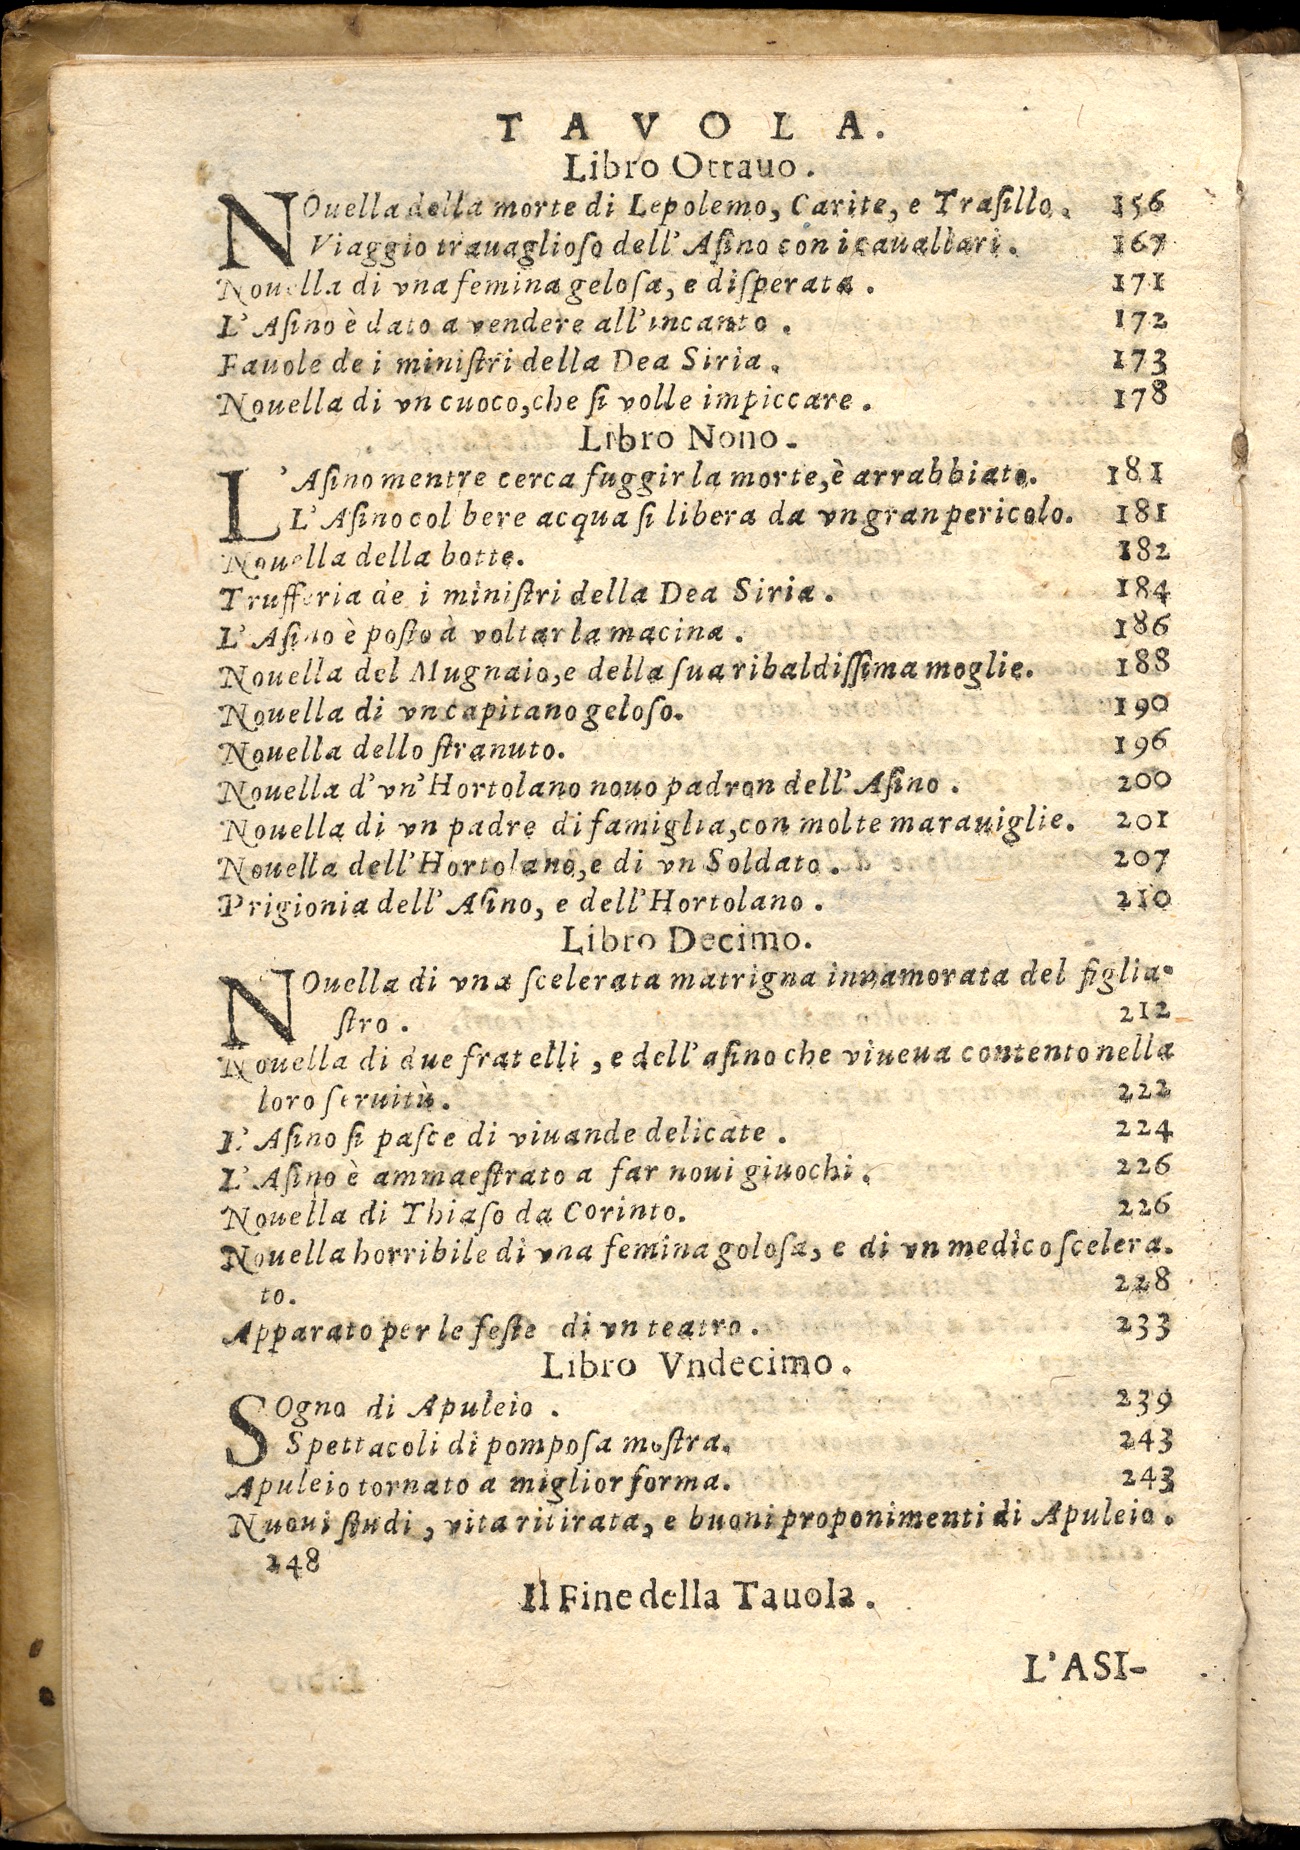 TAVOLA.
Libro Ottauo.
NOuella della morte di Lepolemo, Carite, e Traſillo. 156
Viaggio trauaglioſo dell'Aſino con i cauallari. 167
Nouella di vna femina geloſa, e diſperata. 171
L'Aſino è dato a vendere all'incanto. 172
Fauole de i miniſtri della Dea Siria. 173
Nouella di vn cuoco, che ſi volle impiccare. 178
Libro Nono.
L'Aſino mentre cerca fuggir la morte, è arrabbiato. 181
L'Aſino col bere acqua ſi libera da vn gran pericolo. 181
Nouella della botte. 182
Trufferia de i miniſtri della Dea Siria. 184
L'Aſino è poſto à voltar la macina. 186
Nouella del Mugnaio, e della ſua ribaldiſſima moglie. 188
Nouella di vn capitano geloſo. 190
Nouella dello ſtranuto. 196
Nouella d'vn'Hortolano nouo padron dell'Aſino. 200
Nouella di vn padre di famiglia, con molte marauiglie. 201
Nouella dell'Hortolano, e di vn Soldato. 207
Prigionia dell'Aſino, e dell'Hortolano. 210
Libro Decimo.
NOuella di vna ſcelerata matrigna innamorata del figlia-
ſtro. 212
Nouella di due fratelli, e dell'aſino che viueua contento nella
loro ſeruitù. 222
L'Aſino ſi paſce di viuande delicate. 224
L'Aſino è ammaeſtrato a far noui giuochi. 226
Nouella di Thiaſo da Corinto. 226
Nouella horribile di vna femina goloſa, e di vn medico ſcelera-
to. 228
Apparato per le feſte di vn teatro. 233
Libro Vndecimo.
SOgno di Apuleio. 239
Spettacoli di pompoſa moſtra. 243
Apuleio tornato a miglior forma. 243
Nuoui ſtudi, vita ritirata, e buoni proponimenti di Apuleio.
248
Il Fine della Tauola.
L'ASI-